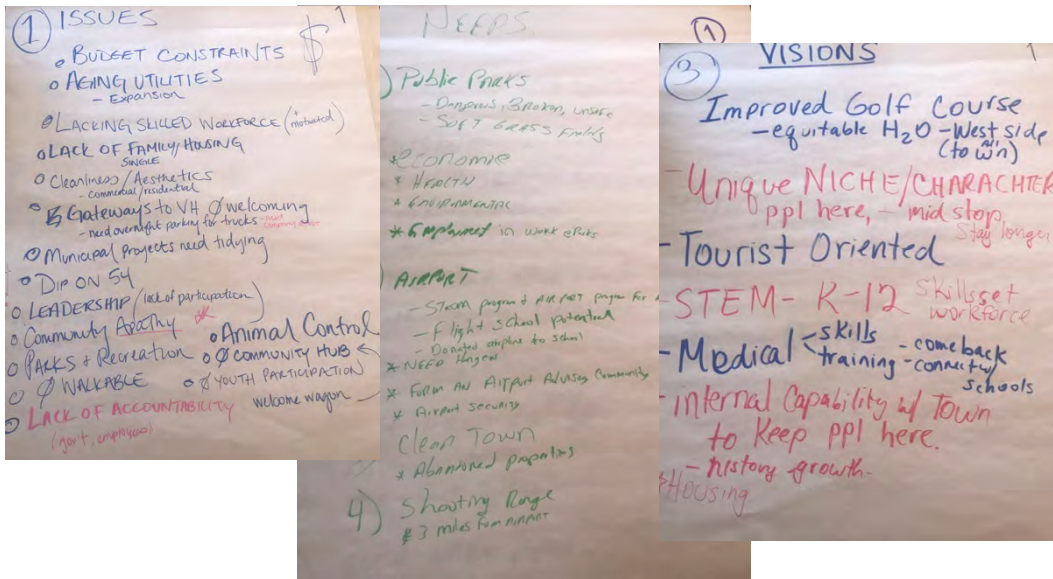 1 ISSUES 1
$
BUDGET CONSTRAINTS
AGING UTILITIES
- EXPANSION
LACKING SKILLED WORKFORCE (motivated)
LACK OF FAMILY/HOUSING
SINGLE
Cleanliness/Aesthetics
- commercial/residential
Gateways to VH Ø welcoming
- need overnight parking for trucks
Municipal projects need tidying
DIP ON 54
LEADERSHIP (lack of participation)
Community Apathy
Animal Control
PARKS + RECREATION
Ø COMMUNITY HUB
Ø WALKABLE
Ø YOUTH PARTICIPACTION
welcome wagon
LACK OF ACCOUNTABILITY
(gov't, employees)
NEEDS 1
Public Parks
- Dangerous, Broken, unsafe
- SOFT GRASS Fields
* economic
* HEALTH
* ENVIRONMENTAL
* Employment in work
AIRPORT
- STEM program & AIRPORT program for
- Flight school potential
- Donated airplane to school
* NEED Hangers
* Form AN Airport Advisory Community
* Airport security
Clean Town
* Abandoned properties
4) Shooting Range
* 3 miles from AIRPORT
3 VISIONS 1
Improved Golf Course
- equitable H2O - West side
(to WN)
- Unique NICHE/CHARACHTER
ppl here, - mid stop,
Stay longer
- Tourist Oriented
- STEM - K-12 skillsset
workforce
- Medical - skills - come back
training - connect w/
schools
- Internal Capability w/ Town
to keep ppl here.
- history growth.
Housing